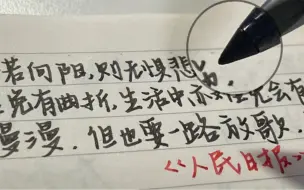 若向阳,则无惧悲
免有曲折,生活中亦难免会有
漫漫.但也要一路放歌
《人民日报》